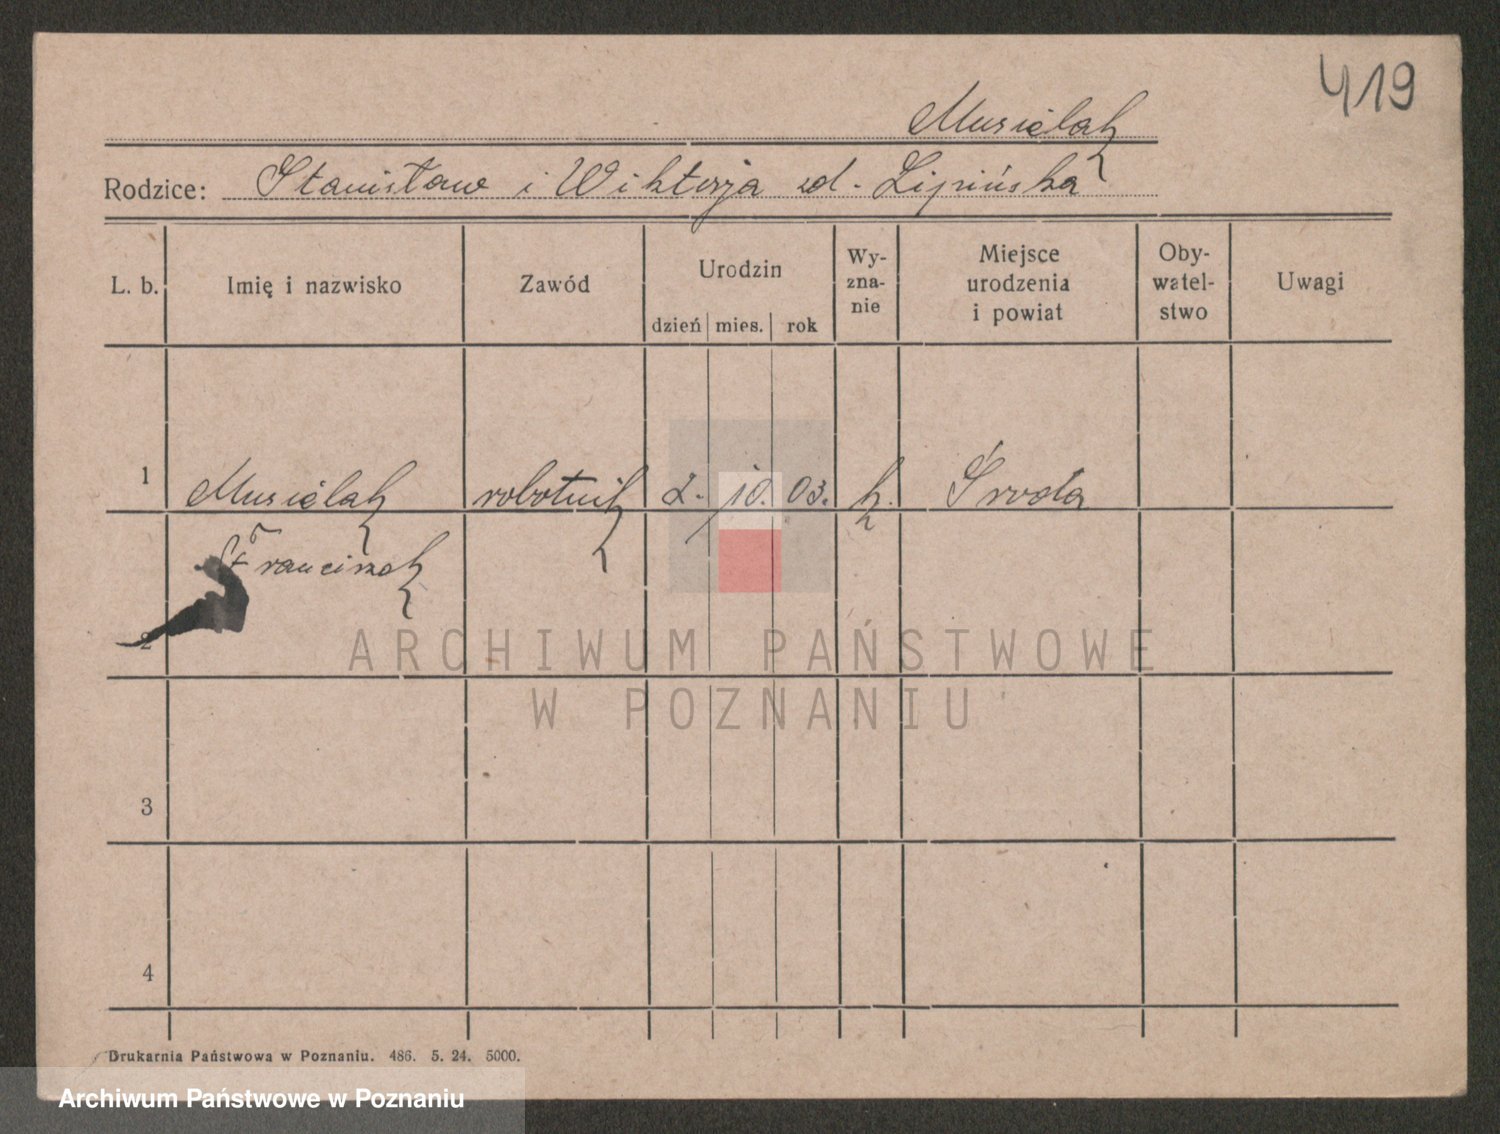 419
Musielak
Rodzice: Stanisław i Wiktorja zd. Lipińska
L. b. Imię i nazwisko Zawód Urodzin dzień mies. rok Wy-zna-nie Miejsce urodzenia i powiat Oby-watel-stwo Uwagi
1 Musielak robotnik 2. 10. 03. k. Środa
Franciszek
2
ARCHIWUM PAŃSTWOWE
W POZNANIU
3
4
Drukarnia Państwowa w Poznaniu. 486. 5. 24. 5000.
Archiwum Państwowe w Poznaniu